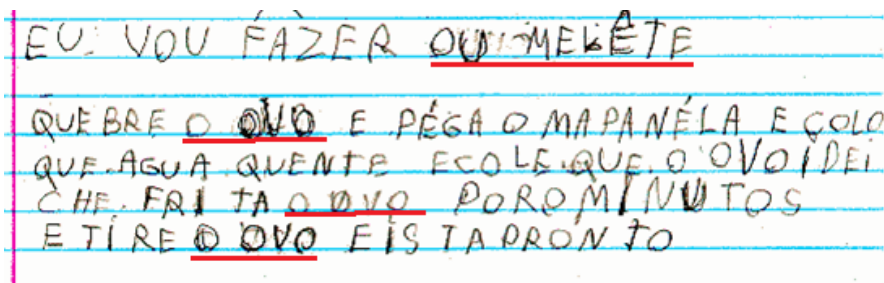 EU. VOU FAZER OU MELÊTE
QUEBRE O OVO E PÉGA O MAPANÉLA E COLO
QUE.AGUA QUENTE ECOLE.QUE.O OVO IDEI
CHE.FRITA O OVO POROMINUTOS
E TIRE O OVO EISTAPRONTO